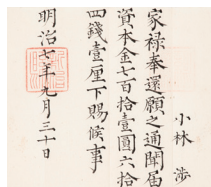 小林 渉
家祿奉還願之通聞届
資本金七百拾壹圓六拾
四錢壹厘下賜候事
明治七年九月三十日